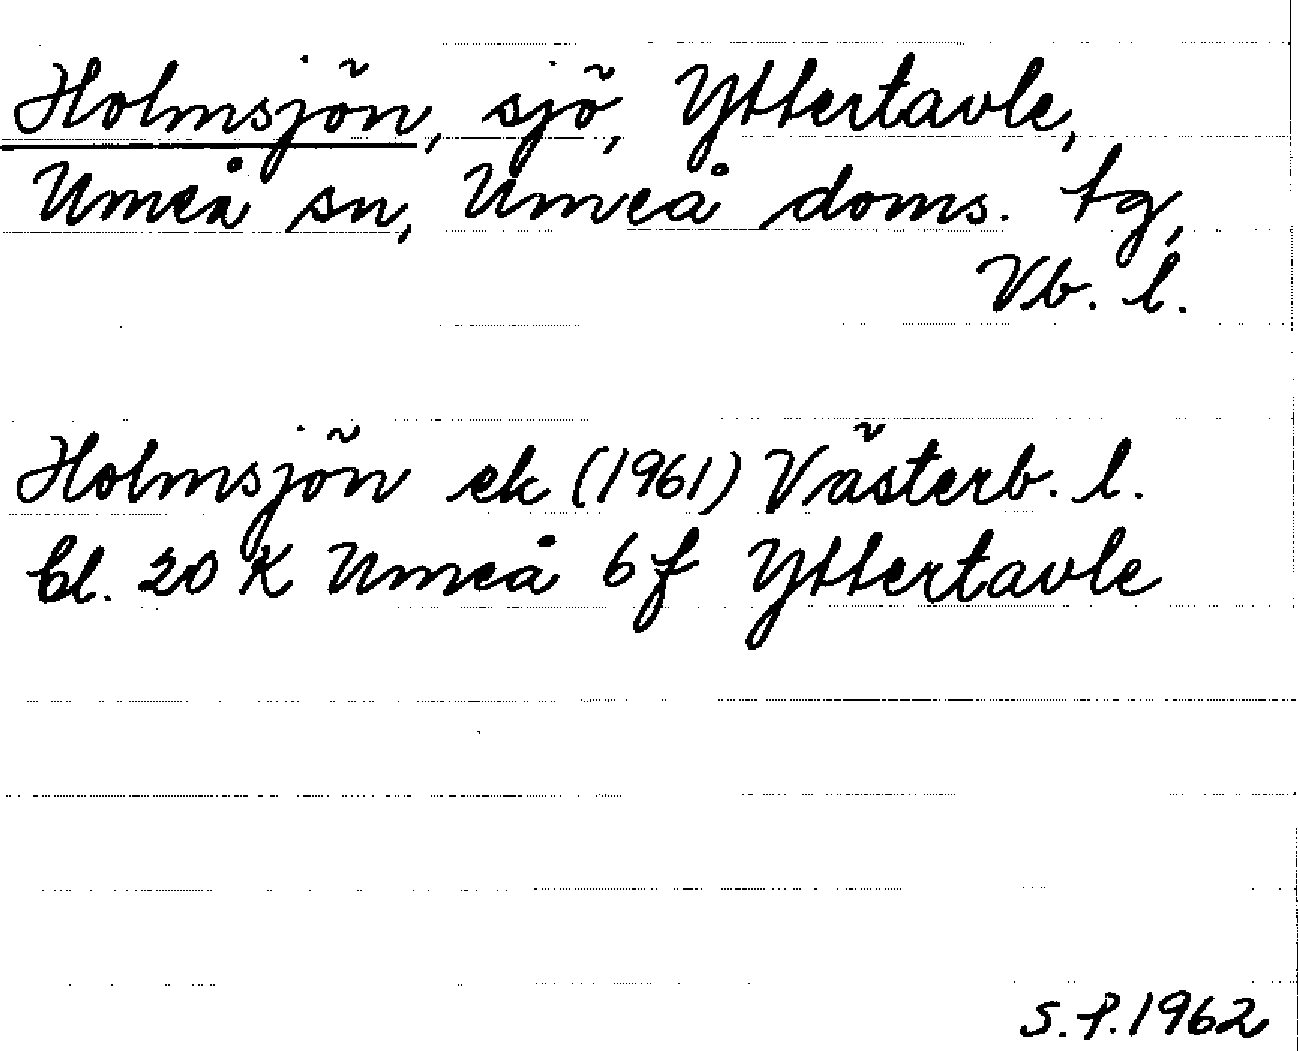 Holmsjön, sjö, Yttertavle,
Umeå sn, Umeå doms. tg,
Vb. l.
Holmsjön ek (1961) Västerb. l.
bl. 20 K Umeå 6 f Yttertavle
S. P. 1962